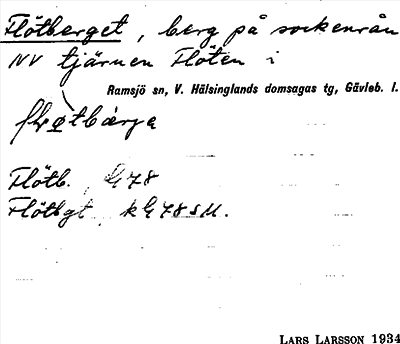 Flötberget, berg på sockenrån
NV tjärnen Flöten i
Ramsjö sn, V. Hälsinglands domsagas tg, Gävleb. l.
Flötb. G 78
Flötbgt kG 78 SM.
LARS LARSSON 1934